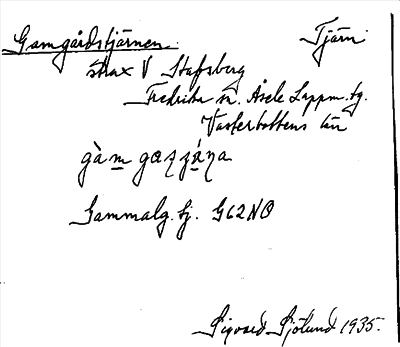 Gamgårdstjärnen. Tjärn.
strax V Stafsberg
Fredrika sn. Åsele Lappm. tg.
Västerbottens län
gàm gaʒʒáɳa
Gammalg. tj. G62NO
Sigvard Sjölund 1935.